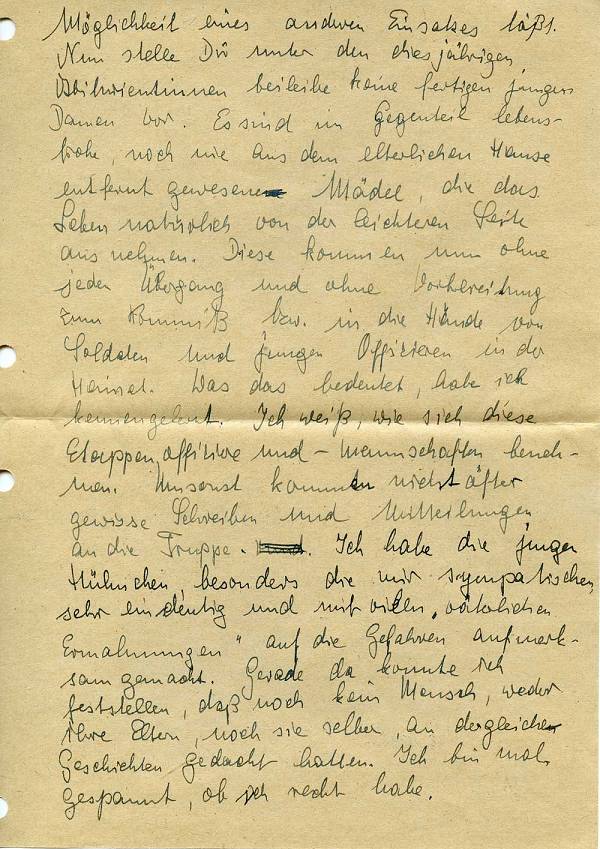 Möglichkeit eines anderen Einsatzes läßt.
Nun stelle Dir unter den diesjährigen
Abiturientinnen beileibe keine fertigen jungen
Damen vor. Es sind im Gegenteil lebens-
frohe, noch nie aus dem elterlichen Hause
entfernt gewesene Mädel, die das
Leben natürlich von der leichteren Seite
aus nehmen. Diese kommen nun ohne
jeden Übergang und ohne Vorbereitung
zum Kommiß bzw. in die Hände von
Soldaten und jungen Offizieren in der
Heimat. Was das bedeutet, habe ich
kennengelernt. Ich weiß, wie sich diese
Etappenoffiziere und -mannschaften beneh-
men. Umsonst kommen nicht öfter
gewisse Schreiben und Mitteilungen
an die Truppe. Ich habe die jungen
Hühnchen, besonders die mir sympatischen,
sehr eindeutig und mit vielen "väterlichen
Ermahnungen" auf die Gefahren aufmerk-
sam gemacht. Gerade da konnte ich
feststellen, daß noch kein Mensch, weder
ihre Eltern, noch sie selber, an dergleichen
Geschichten gedacht hatten. Ich bin mal
gespannt, ob ich recht habe.